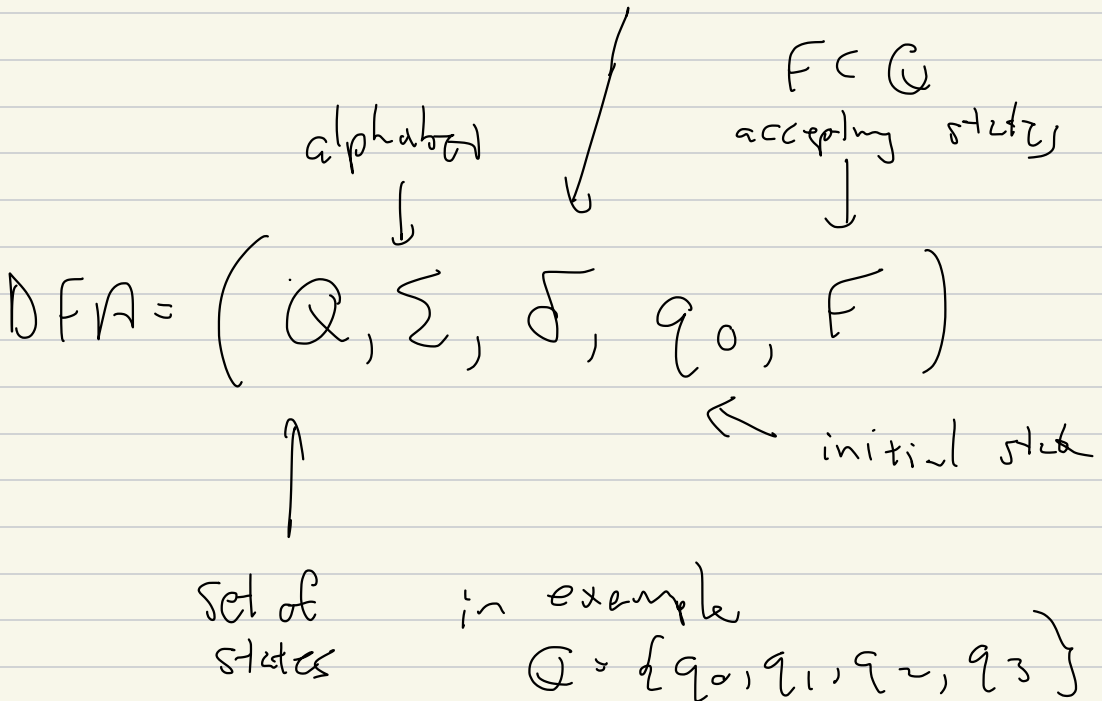 F ⊂ Q
alphabet
accepting states
DFA = ( Q, Σ, δ, q₀, F )
initial state
set of
states
in example
Q = {q₀, q₁, q₂, q₃}